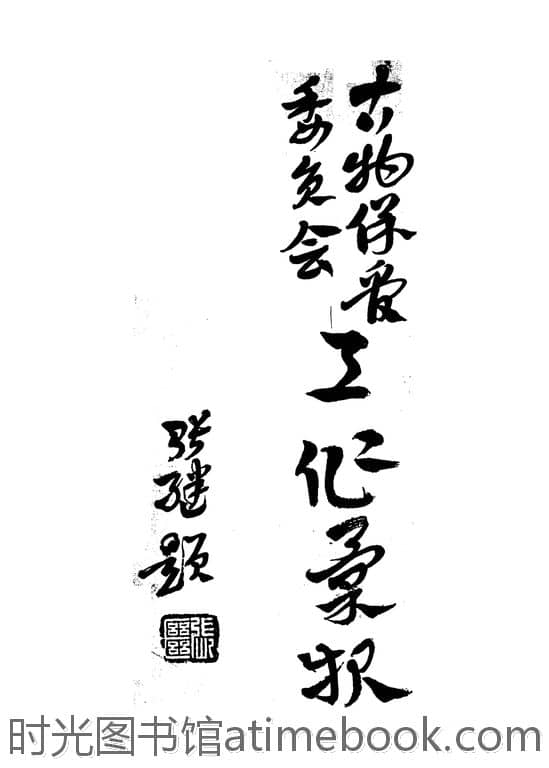 古物保爱
委员会
工作汇报
张继题
时光图书馆atimebook.com